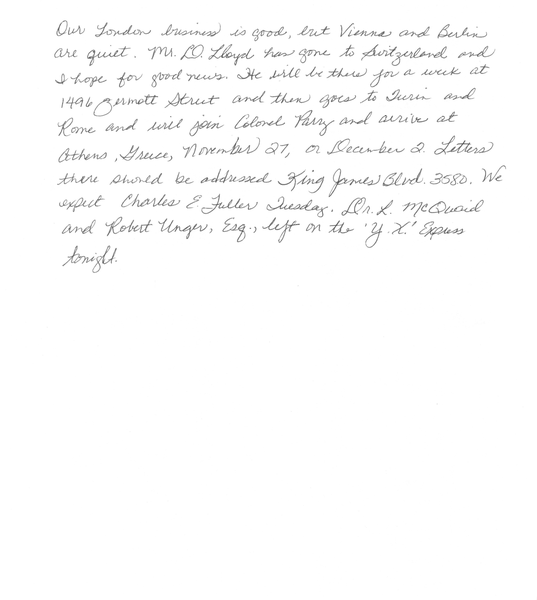 Our London business is good, but Vienna and Berlin
are quiet. Mr. D. Lloyd has gone to Switzerland and
I hope for good news. He will be there for a week at
1496 Zermott Street and then goes to Turin and
Rome and will join Colonel Parry and arrive at
Athens, Greece, November 27, or December 2. Letters
there should be addressed King James Blvd. 3580. We
expect Charles E. Fuller Tuesday. Dr. L. McQuaid
and Robert Unger, Esq., left on the 'Y. X.' Express
tonight.